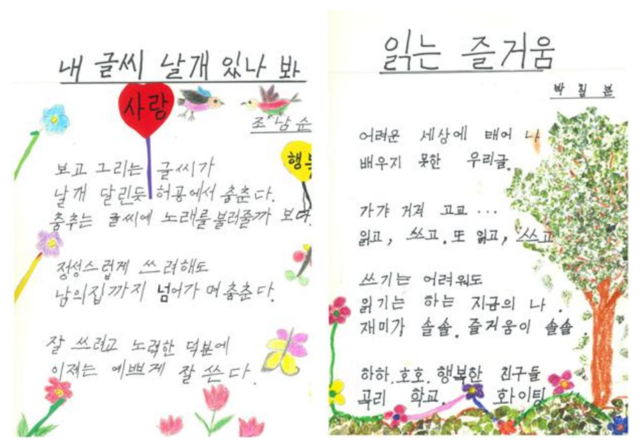 내 글씨 날개 있나 봐
사랑
조남순
행복
보고 그리는 글씨가
날개 달린듯 허공에서 춤춘다.
춤추는 글씨에 노래를 불러줄까 보다.
정성스럽게 쓰려해도
남의집까지 넘어가 며 춤춘다.
잘 쓰려고 노력한 덕분에
이제는 예쁘게 잘 쓴다.
읽는 즐거움
박 필 본
어려운 세상에 태어 나
배우지 못한 우리글.
가갸 거겨 고교 ...
읽고, 쓰고. 또 읽고, 쓰고
쓰기는 어려워도
읽기는 하는 지금의 나.
재미가 솔솔. 즐거움이 솔솔.
하하. 호호. 행복한 친구들
학교. 화이팅